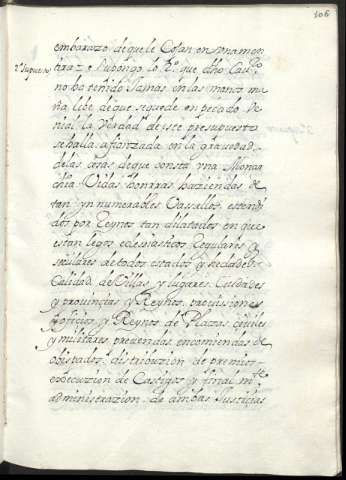 106
embarazo de que le Cojan en una men
2º Supuesto
tira: e Supongo lo 2º que dho Cau.ro
no ha tenido Jamas en las manos mu
que de que se quede en pecado Ve
nial la Verdad de este presupuesto
se halla afianzada en la gravedad
de las cosas de que consta una Monar
chia Vidas honrras haziendas de
tan ynnumerables Vasallos estendi
dos por Reynos tan dilatados en que
estan legos eclesiasticos Regulares y
seculares de todos estados y hedades
Calidad de Villas y lugares Ciudades
y provincias y Reynos, provisiones
oficios y de Plazas civiles
y militares, prevendas encomiendas
obispados, distribuzion de premios
execuzion de Castigos y final m.te
administrazion de ambas Justicias